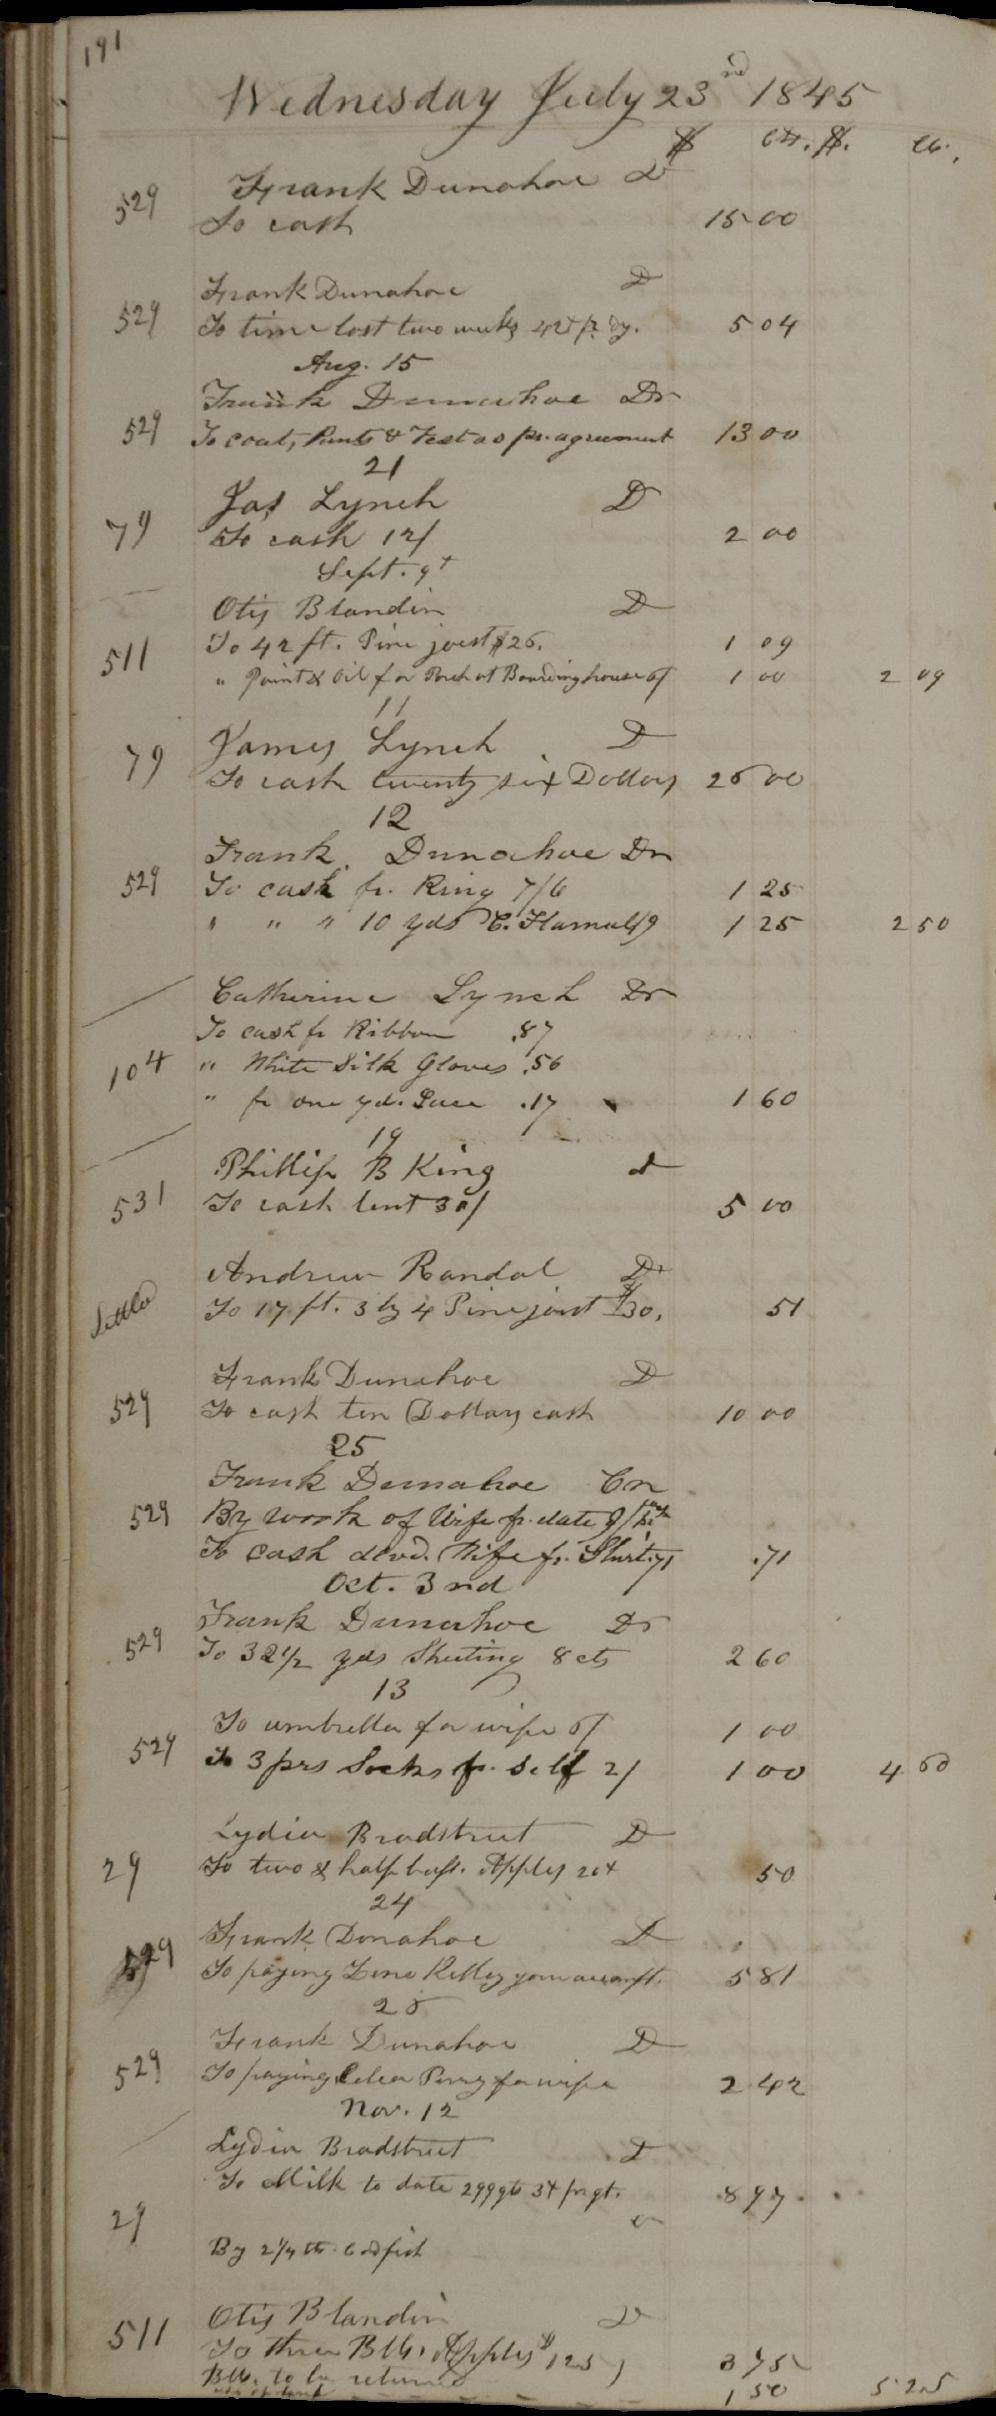 191
Wednesday July 23rd 1845
$ cts. $. cts.
529 Frank Dunahoe Dr
To cash 15 00
Frank Dunahoe Dr
529 To time lost two weeks 42 cts pr. dy. 5 04
Aug. 15
Frank Dunahoe Dr
529 To coat, Pants & Vest as pr. agreement 13 00
21
Jas Lynch Dr
79 To cash 12/ 2 00
Sept. 9t
Otis Blandin Dr
511 To 42 ft. Pine joist $26. 1 09
" Paint & Oil for Porch at Boardinghouse 6/ 1 00 2 09
11
James Lynch Dr
79 To cash twenty six Dollars 26 00
12
Frank Dunahoe Dr
529 To cash fr. Ring 7/6 1 25
" " " 10 yds C. Flannel /9 1 25 2 50
Catherine Lynch Dr
To cash fr Ribbon .87
104 " White Silk Gloves .56
" fr one yd. Lace .17 1 60
19
Phillip B King Dr
531 To cash lent 30/ 5 00
Andrew Randal Dr
Settled To 17 ft. 3 by 4 Pine joist $30. 51
Frank Dunahoe Dr
529 To cash ten Dollars cash 10 00
25
Frank Dunahoe Cr
529 By work of Wife fr. date 9/
To cash delvd. Wife fr. Shirt .71 .71
Oct. 3nd
Frank Dunahoe Dr
529 To 32 1/2 yds Sheeting 8 cts 2 60
13
To umbrella for wife 6/ 1 00
529 To 3 prs Socks fr. Self 2/ 1 00 4 60
Lydia Bradstreet Dr
29 To two & half bush. Apples 20 cts 50
24
Frank Donahoe Dr
529 To paying Zeno Kelley your account. 5 81
28
Frank Dunahoe Dr
529 To paying Perry for wife 2 42
Nov. 12
Lydia Bradstreet Dr
To Milk to date 299 qts 3 cts pr qt. 8 97
29 Cr
By 2 1/4 lbs Codfish
Otis Blandin Dr
511 To three Bbls. Apples $1 25 3 75
Bbls. to be returned 1 50 5 25